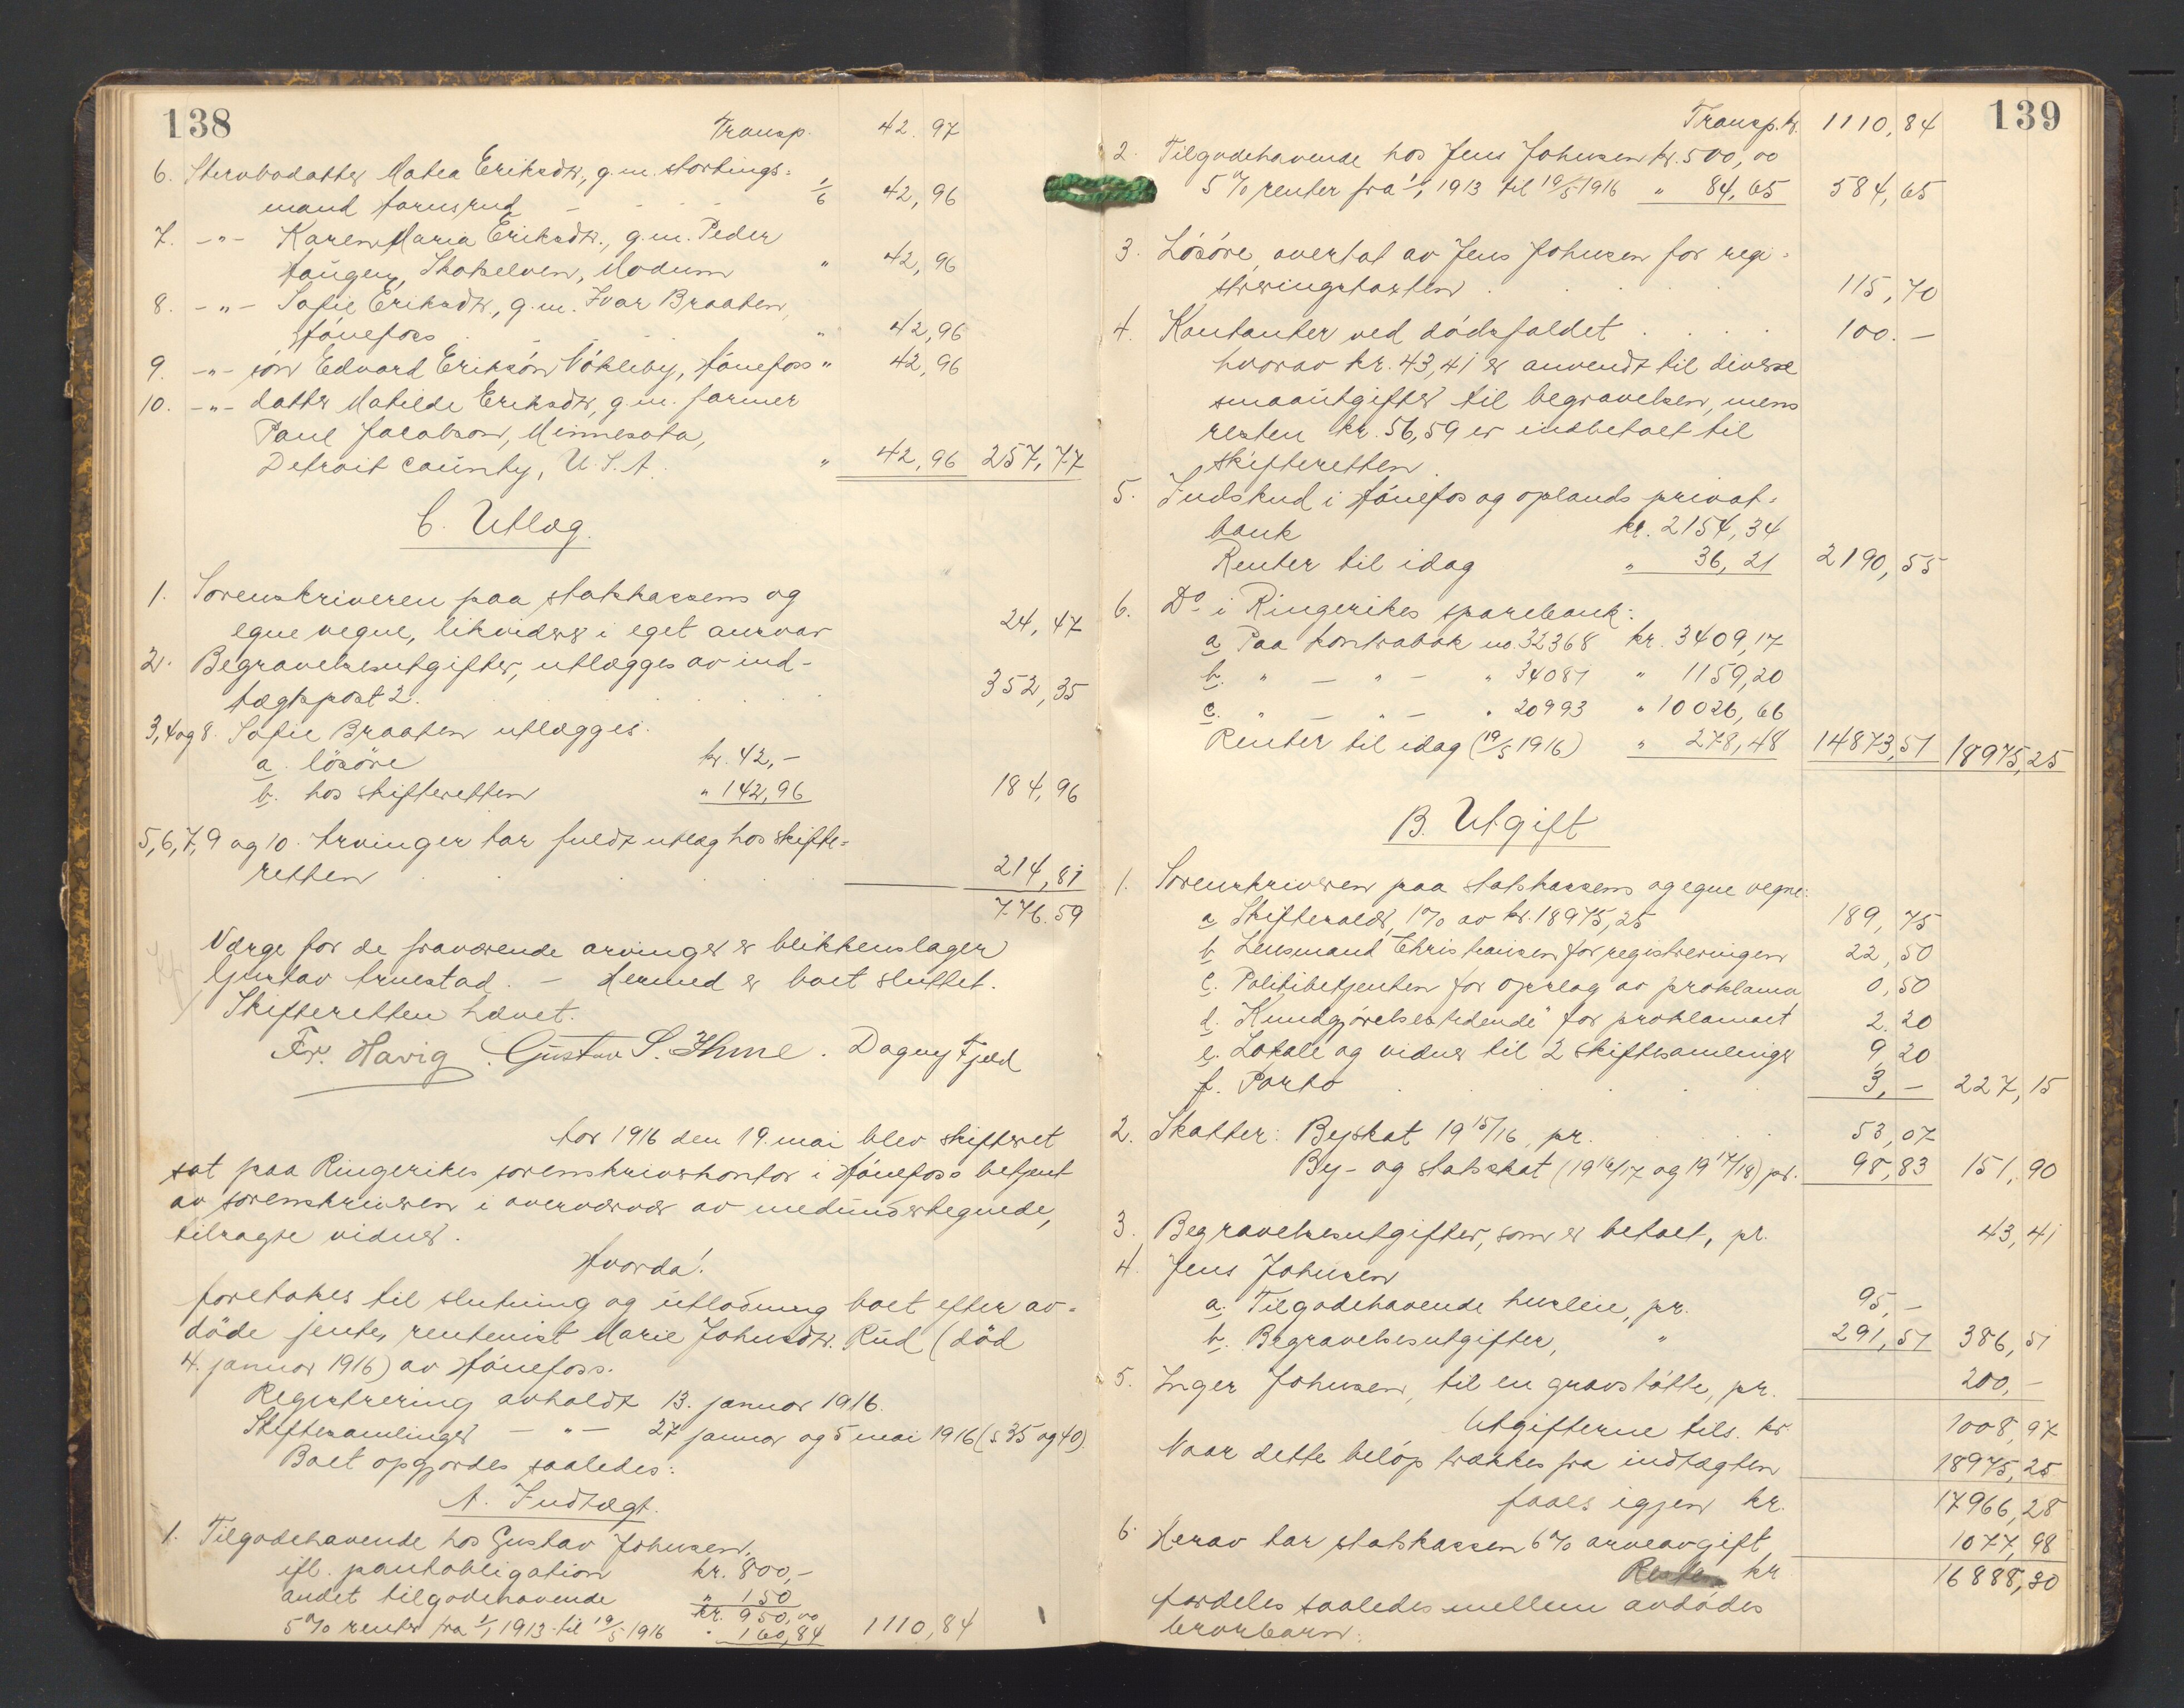 138
Transp. 42.97
6. Stervbodatter Matea Eriksdtr, g.m. stortings-
mand Hornsrud 1/6 42,96
7. -"- Karen Maria Eriksdtr., g.m. Peder
Haugen, Skotselven, Modum " 42,96
8. -"- Sofie Eriksdtr, g.m. Ivar Braaten,
Hönefoss " 42,96
9. -"- sön Edvard Eriksön Vökleby, Hönefoss " 42,96
10. -"- datter Matilde Eriksdtr, g.m. farmer
Paul Jacobson, Minnesota,
Detroit county, U.S.A. " 42,96 257,77
C. Utlæg.
1. Sorenskriveren paa statskassens og
egne vegne, likviderer i eget ansvar 24,47
2. Begravelsesutgifter, utlægges av ind-
tægtspost 2. 352,35
3,4 og 8. Sofie Braaten utlægges:
a. lösöre kr. 42,-
b. hos skifteretten " 142,96 184,96
5,6,7,9 og 10. Arvinger har fuldt utlæg hos skifte-
retten 214,81
776.59
Verge for de fraværende arvinger er blikkenslager
Gustav Ernestad. - Hermed er boet sluttet.
Skifteretten hævet.
Fr. Havig Gustav S. Ihme. Dagny Fjeld
Aar 1916 den 19. mai blev skifteret
sat paa Ringerikes sorenskriverkontor i Hönefoss betjent
av sorenskriveren i overværelse av medundertegnede,
tilsagte vidner.
Hvorda!
foretokes til slutning og utlodning boet efter av-
döde jente, rentenist Marie Johnsdtr. Rud (död
4. januar 1916) av Hönefoss.
Registrering avholdt 13. januar 1916.
Skiftesamlinger - " - 27 januar og 5 mai 1916 (s 35 og 40)
Boet opgjordes saaledes:
A. Indtægt.
1. Tilgodehavende hos Gustav Johnsen,
ifl. pantobligation kr. 800,-
andet tilgodehavende " 150
kr. 950,00
5% renter fra 1/1 1913 til 19/5 1916 " 160,84 1110,84
139
Transp. kr. 1110,84
2. Tilgodehavende hos Jens Johnsen kr. 500,00
5% renter fra 1/1 1913 til 19/5 1916 " 84,65 584,65
3. Lösöre, overtat av Jens Johnsen for regi-
streringstaxten 115,70
4. Kontanter ved dödsfaldet 100.-
hvorav kr. 43,41 er anvendt til diverse
smaautgifter til begravelsen, mens
resten kr. 56,59 er indbetalt til
skifteretten.
5. Indskud i Hönefos og oplands privat-
bank kr. 2154,34
Renter til idag " 36,21 2190,55
6. Do i Ringerikes sparebank:
a. Paa kontrabok no. 32368 kr. 3409,17
b. " - " - " 34087 " 1159,20
c. " - " - " 20993 " 10026,66
Renter til idag (19/5 1916) " 278,48 14873,51 18975,25
B. Utgift
1. Sorenskriveren paa statskassens og egne vegne:
a. Skifteraldr, 1% av kr. 18975,25 189,75
b. Lensmand Christiansen for registreringen 22,50
c. Politibetjenten for opslag av proklama 0,50
d. "Kundgjörelsestidende" for proklamaet 2.20
e. Lokale og vidner til 2 skiftesamlinger 9,20
f. Porto 3,- 227,15
2. Skatter: Byskat 1915/16, pr. 53,07
By- og statsskat (1916/17 og 1917/18) pr. 98,83 151,90
3. Begravelsesutgifter, som er betalt, pr. 43,41
4. Jens Johnsen
a. Tilgodehavende husleie, pr. 95,-
b. Begravelsesutgifter, " 291,51 386,51
5. Inger Johnsen, til en gravstötte, pr. 200,-
Utgifterne tils. kr. 1008,97
Naar dette belöp trækkes fra indtægten 18975,25
faaes igjen kr. 17966,28
6. Herav tar statskassen 6% arveavgift 1077,98
Resten kr 16888,30
fordeles saaledes mellem avdödes
brorbarn: